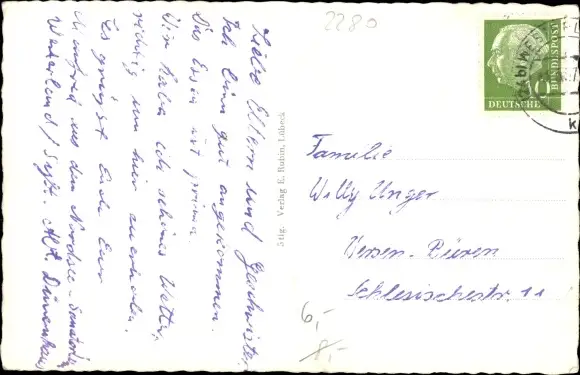 2280
Liebe Eltern und Geschwister
Ich bin gut angekommen.
Das Essen ist prima.
Wir haben ein schönes Wetter,
richtig um hier zu
Es grüsst Euch Euer
Manfred aus dem Nordsee-
Westerland/Sylt. Abt. Dünenhaus
Stlg. Verlag E. Rubin, Lübeck
DEUTSCHE
BUNDESPOST
10
Familie
Willy Unger
Versen-Büren
Schlesischestr. 11
6,-
8,-